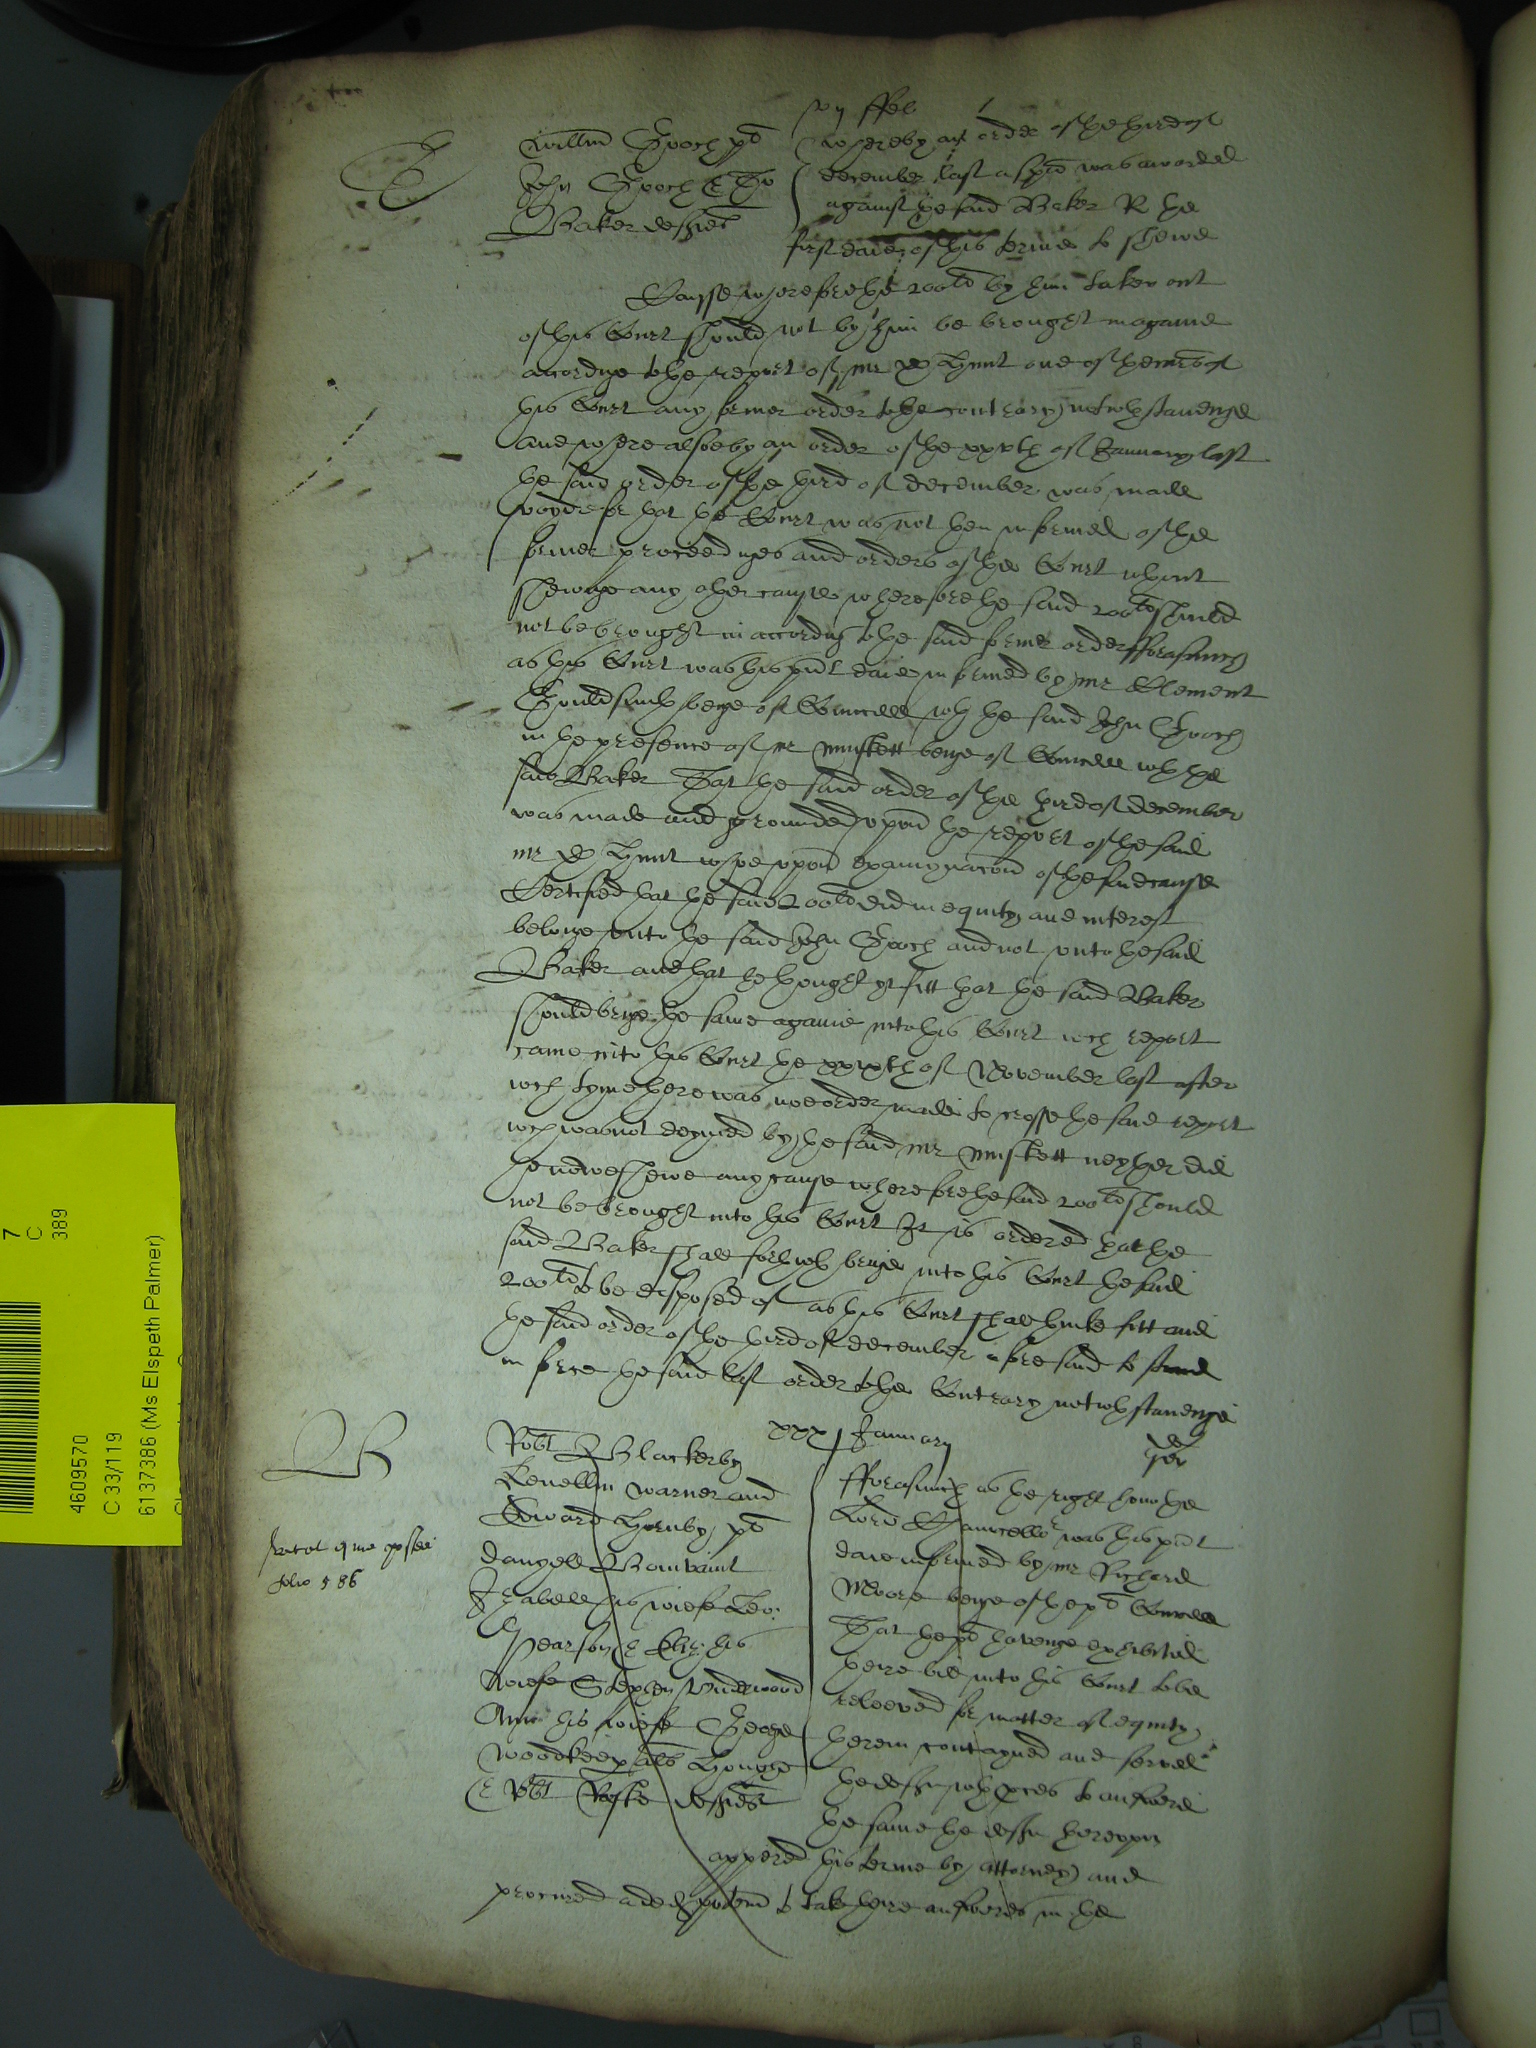 vij ffeb
Willm Gooch pl
John Gooch & Tho
Baker deftes
Whereby an order of the third of
december last a spa was awarded
against the said Baker R the
first daie of this terme to shewe
Causse wherefore the 200li by him taken out
of this Court should not by him be brought in againe
accordinge to the report of mr D Hunt one of the mrs of
this Court any former order to the contrary notwthstandinge
and where alsoe by an order of the xxvth of January last
the said order of the third of december was made
voyde for that the Court was not then informed of the
former proceedinges and orders of the Court wthout
shewinge any other causse wherefore the said 200li should
not be brought in accordinge to the said former order fforasmuch
as this Court was this pnt daie informed by mr Clement
beinge of Councell wth the said John Gooch
in the presence of mr Muskett beinge of Councell wth the
said Baker That the said order of the third of december
was made and grounded vpon the report of the said
mr D Hunt whoe vpon examynacon of the said cause
Certified that the said 200li did in equity and interest
belonge vnto the said John Gooch and not vnto the said
Baker and that he thought yt fitt that the said Baker
should bringe the same againe into this Court wch report
came into this Court the xxixth of November last after
wch tyme there was noe order made to crosse the said report
wch was not denyed by the said mr Muskett neyther did
he nowe shewe any cause wherefore the said 200li should
not be brought into this Court It is ordered that the
said Baker shall forthwth bringe into this Court the said
200li to be disposed of as this Court shall thinke fitt and
the said order of the third of december aforesaid to stand
in force the said last order to the Contrary notwthstandinge
xxxj January
B
Robt Blackerby
Lewellin Warner and
Edward Hornby pl
Danyell Bonvaint
Izabell his wiefe Leo:
Pearson & Eliz: his
wiefe Stephen Underwood
Ann his wiefe George
Woodkeep als Younge
& Robt Roske deftes
vacat quia postea
folio 586
fforasmuch as the right hono the
Lord Chauncellor was this pnt
daie informed by mr Richard
Moore beinge of the pl Councell
That the pl havinge exhibited
theire bill into this Court to be
releeved for matter of equity
therein contayned and served
the deftes wth proces to answere
the same the deftes therevpon
appered this terme by attorney and
procured a ded potem to take theire answeres in the
7
C
389
4609570
C 33/119
6137386 (Ms Elspeth Palmer)